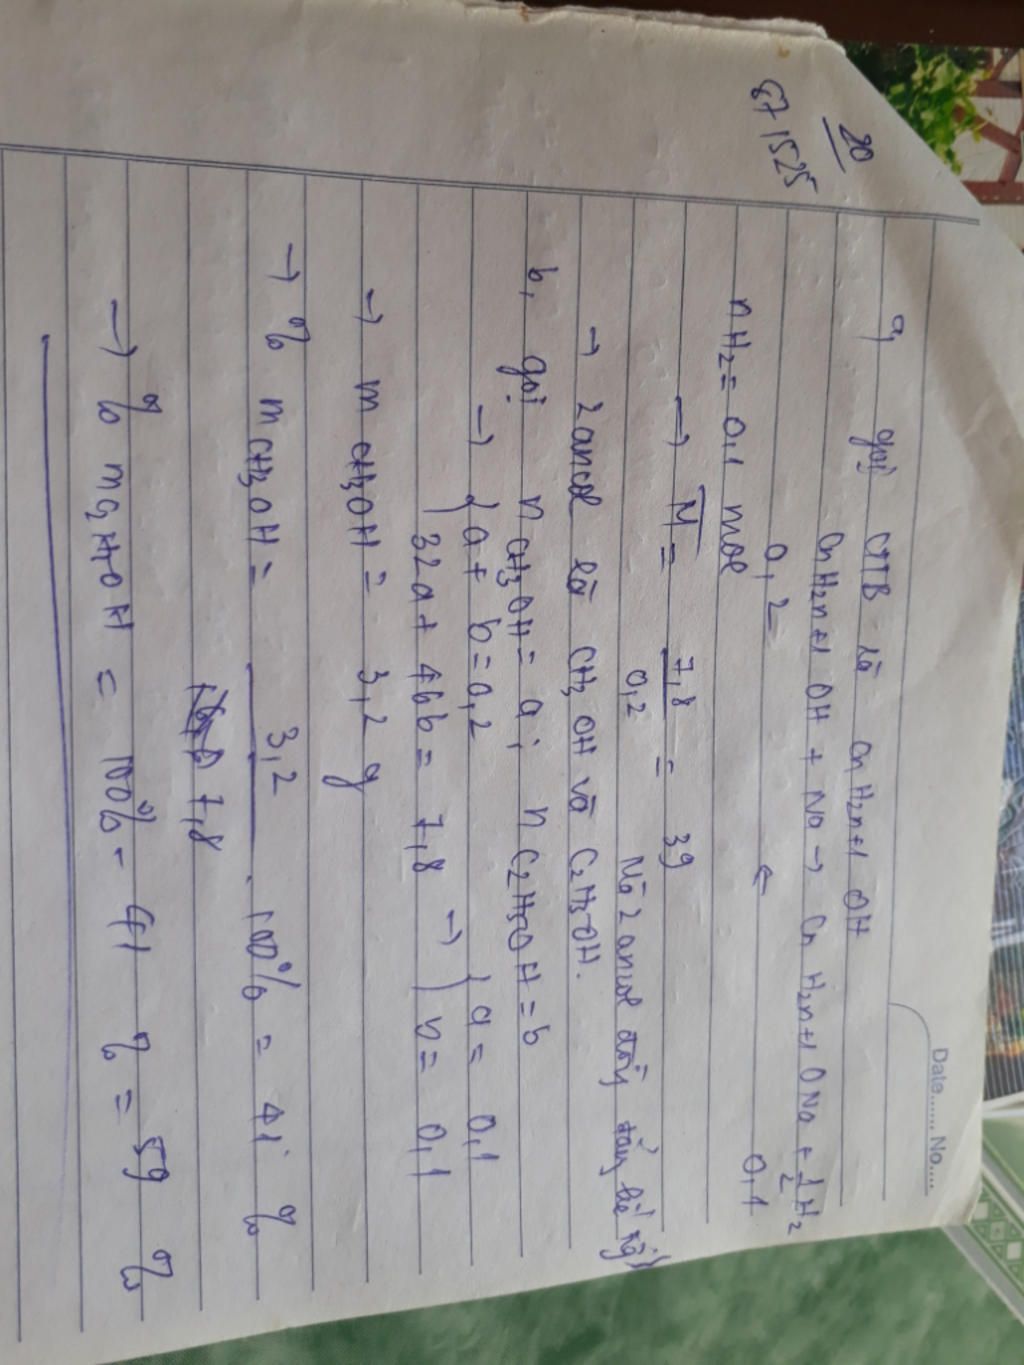 Date...... No....
20
671525
a, gọi CTTB là CnH2n+1 OH
CnH2n+1 OH + Na → CnH2n+1 ONa + 1/2 H2
0,2 ← 0,1
nH2 = 0,1 mol
→ M̅ = 7,8/0,2 = 39 Mà 2 ancol đồng đẳng kế tiếp
→ 2 ancol là CH3OH và C2H5OH.
b, gọi nCH3OH = a ; nC2H5OH = b
→ { a + b = 0,2
32a + 46b = 7,8 → { a = 0,1
b = 0,1
→ mCH3OH = 3,2 g
→ % mCH3OH = 3,2/7,8 . 100% = 41 %
→ % mC2H5OH = 100% - 41 % = 59 %